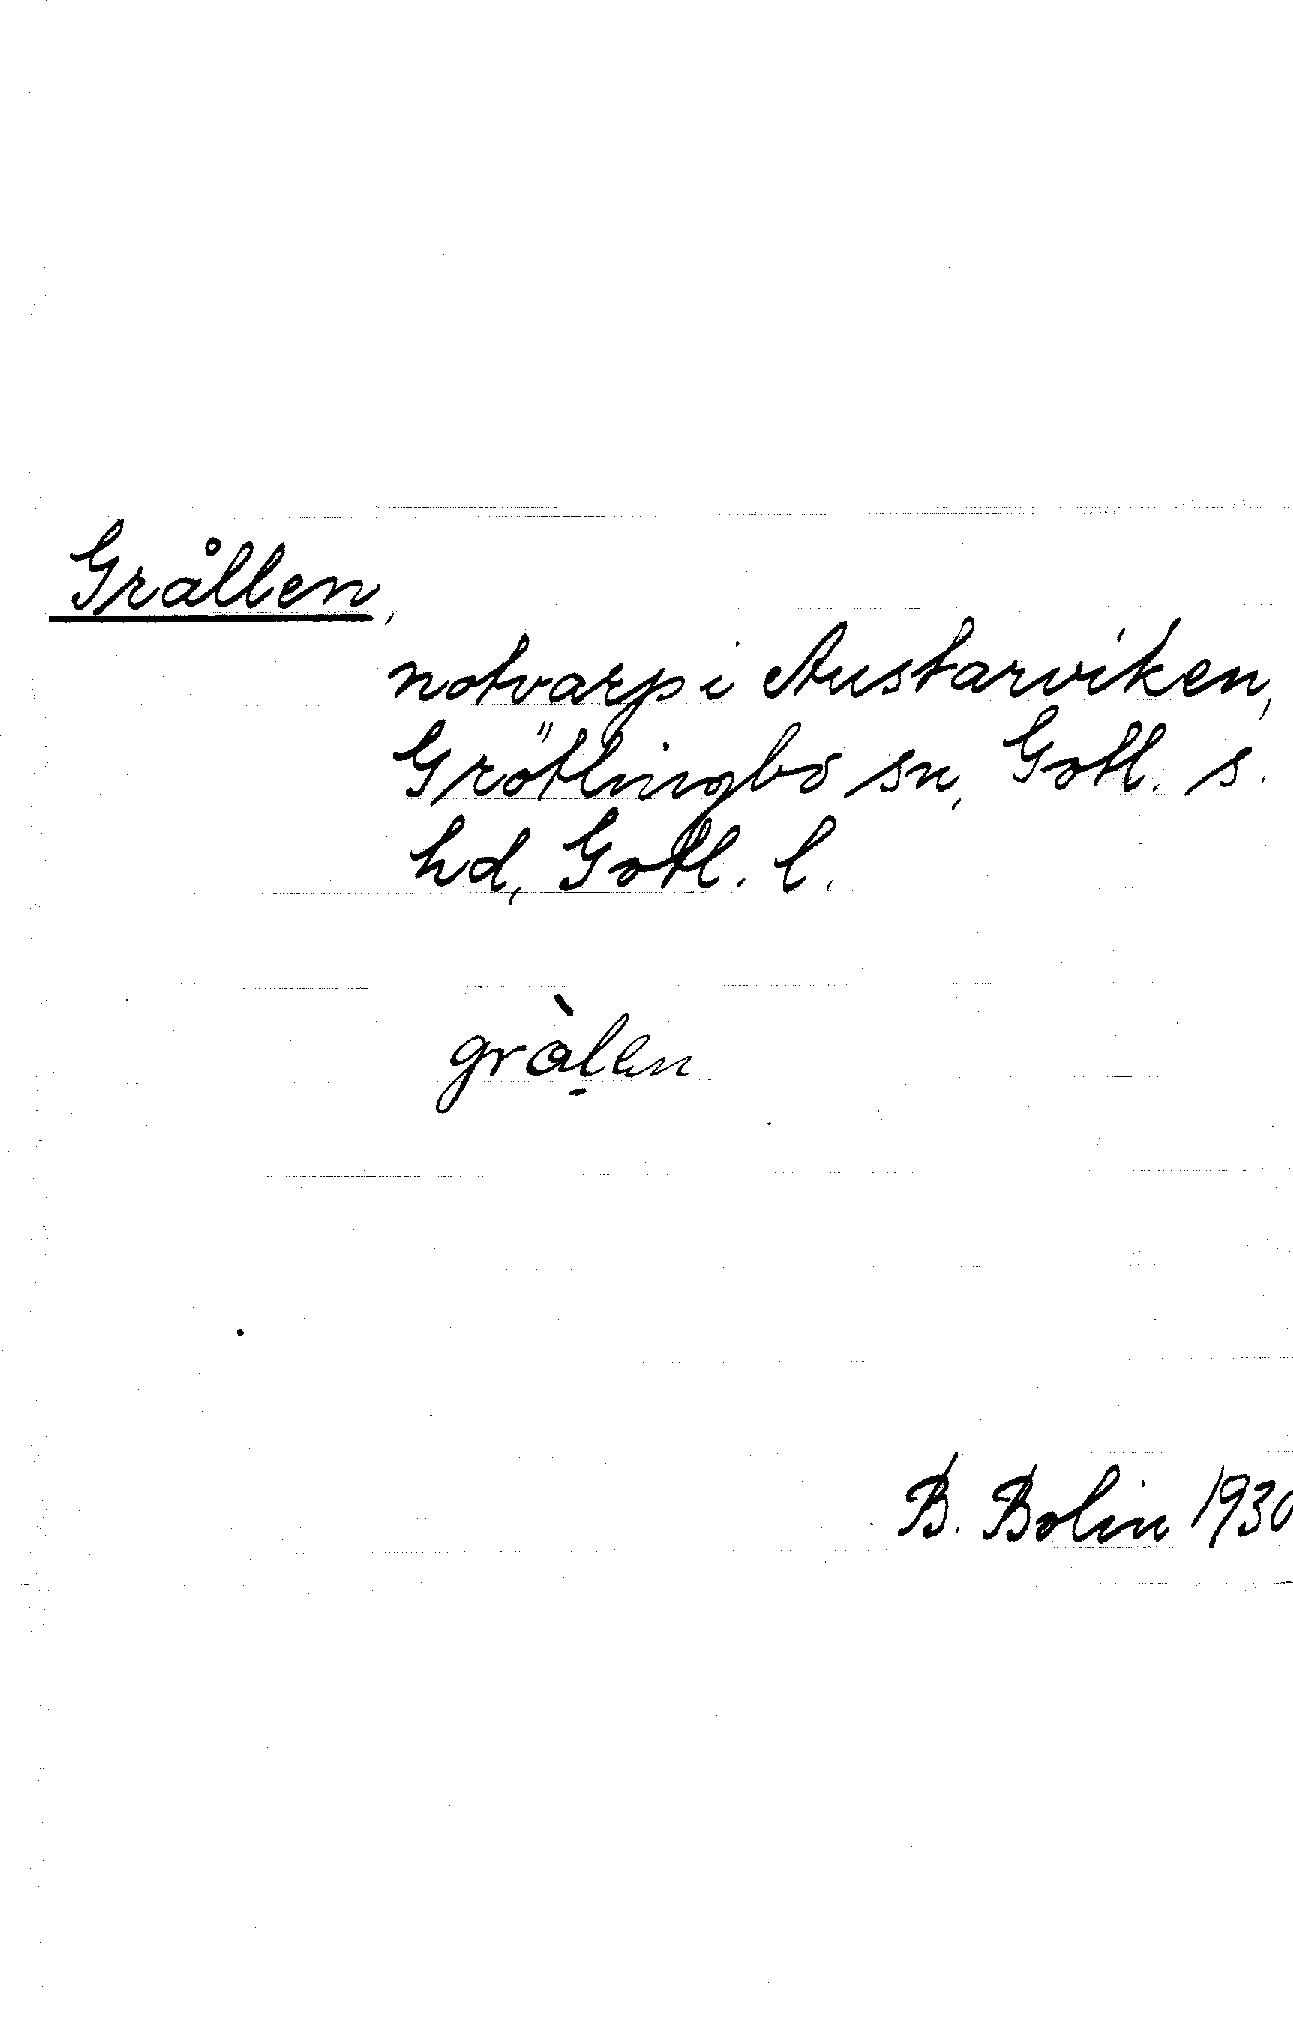 Grållen,
notvarp i Austarviken,
Grötlingbo sn, Gotl. s.
hd, Gotl. l.
gràl̠en
B. Bolin 1930